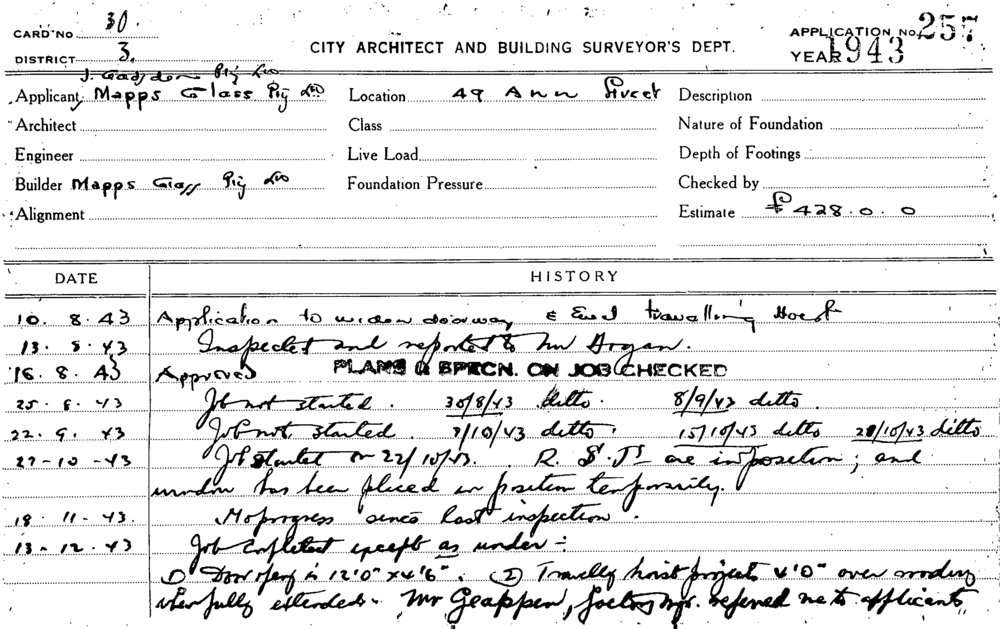 CARD No 30.
DISTRICT 3.
CITY ARCHITECT AND BUILDING SURVEYOR'S DEPT.
APPLICATION No. 257
YEAR 1943
J. Gadsden Pty Ltd
Applicant Mapps Glass Pty Ltd Location 49 Ann Street Description
Architect Class Nature of Foundation
Engineer Live Load Depth of Footings
Builder Mapps Glass Pty Ltd Foundation Pressure Checked by
Alignment Estimate £428.0.0
DATE HISTORY
10. 8. 43 Application to widen doorway & Erect travelling Hoist
13. 8. 43 Inspected and reported to Mr Hogan.
16. 8. 43 Approved PLANS & SPECN. ON JOB CHECKED
25. 8. 43 Job not started. 30/8/43 ditto. 8/9/43 ditto.
22. 9. 43 Job not started. 7/10/43 ditto. 15/10/43 ditto 21/10/43 ditto
27-10-43 Job started on 22/10/43. R. S. Js are in position; and
window has been placed in position temporarily.
18. 11. 43. No progress since last inspection.
13. 12. 43 Job completed except as under:-
1) Door openg is 12'0" x 4'6". 2) Travellg hoist projects 4'0" over
when fully extended. Mr factory mgr. referred me to applicants